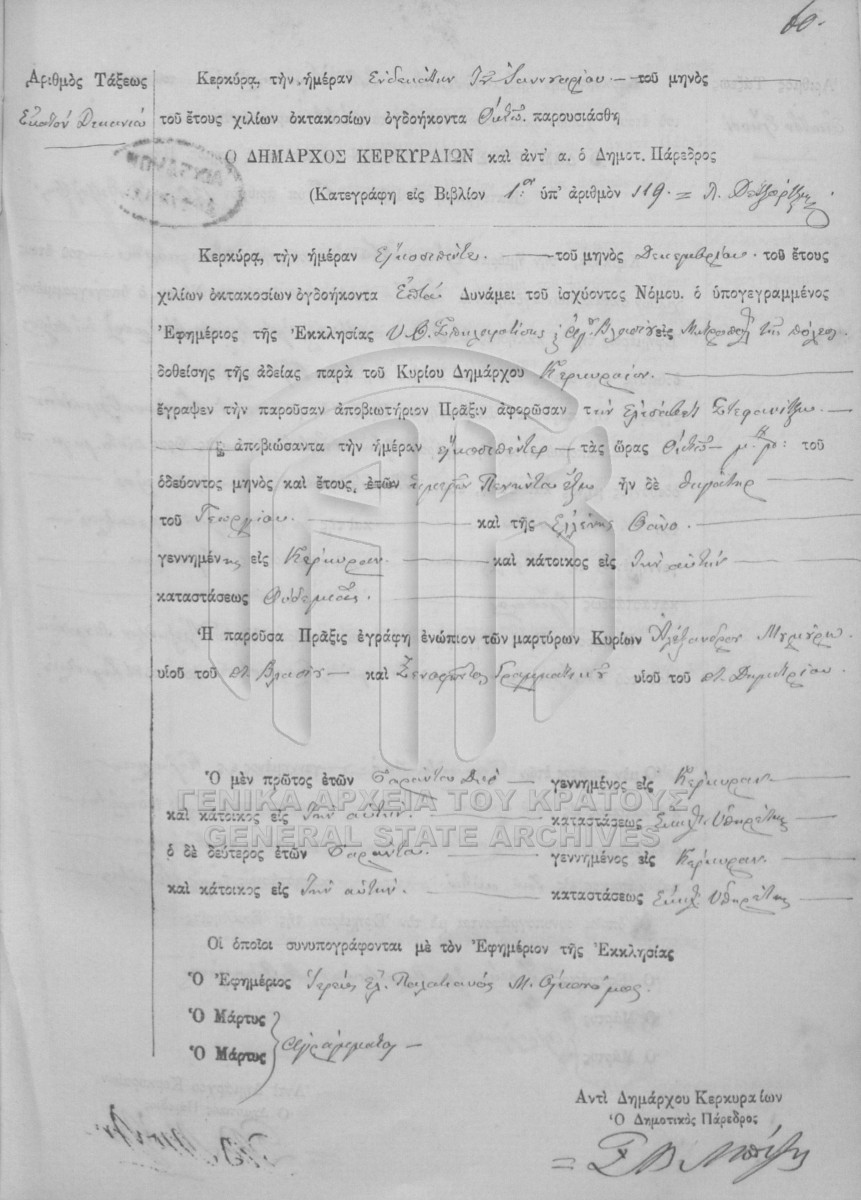 60.
Ἀριθμὸς Τάξεως
Ἑκατὸν Δεκαεννέα
Κερκύρᾳ, τὴν ἡμέραν Ἑνδεκάτην Ἰανουαρίου — τοῦ μηνὸς
τοῦ ἔτους χιλίων ὀκτακοσίων ὀγδοήκοντα Ὀκτώ. παρουσιάσθη
Ο ΔΗΜΑΡΧΟΣ ΚΕΡΚΥΡΑΙΩΝ καὶ ἀντ' α. ὁ Δημοτ. Πάρεδρος
(Κατεγράφη εἰς Βιβλίον 1ον ὑπ' ἀριθμὸν 119 =
Κερκύρᾳ, τὴν ἡμέραν Εἰκοσιπέντε — τοῦ μηνὸς Δεκεμβρίου. τοῦ ἔτους
χιλίων ὀκτακοσίων ὀγδοήκοντα Ἑπτά Δυνάμει τοῦ ἰσχύοντος Νόμου. ὁ ὑπογεγραμμένος
Ἐφημέριος τῆς Ἐκκλησίας Υ. Θ. Σπηλαιωτίσης Βλασίου εἰς Μητρόπολ τῆς πόλεως
δοθείσης τῆς ἀδείας παρὰ τοῦ Κυρίου Δημάρχου Κερκυραίων —
ἔγραψεν τὴν παροῦσαν ἀποβιωτήριον Πρᾶξιν ἀφορῶσαν τὴν Ἐλισάβετ Στεφανίτζη —
ἀποβιώσαντα τὴν ἡμέραν εἰκοσιπέντε — τὰς ὥρας Ὀκτώ — μ. μ: τοῦ
ὁδεύοντος μηνὸς καὶ ἔτους, ἐτῶν ἡμερῶν Πενήντα ἕξω ἦν δὲ θυγάτηρ —
τοῦ Γεωργίου. — καὶ τῆς Ἑλένης Θάνο. —
γεννημένης εἰς Κέρκυραν. — καὶ κάτοικος εἰς τὴν αὐτήν —
καταστάσεως Οὐδεμιᾶς. —
Ἡ παροῦσα Πρᾶξις ἐγράφη ἐνώπιον τῶν μαρτύρων Κυρίων Ἀλεξάνδρου
υἱοῦ τοῦ ποτ. Βλασίου — καὶ Ξενοφῶντος Γραμματικοῦ υἱοῦ τοῦ ποτ. Δημητρίου.
Ὁ μὲν πρῶτος ἐτῶν Σαράντα Δύο — γεννημένος εἰς Κέρκυραν. —
ΓΕΝΙΚΑ ΑΡΧΕΙΑ ΤΟΥ ΚΡΑΤΟΥΣ
καὶ κάτοικος εἰς τὴν αὐτήν. — καταστάσεως Ἐκκλ. Ὑπηρέτης
GENERAL STATE ARCHIVES
ὁ δὲ δεύτερος ἐτῶν Σαράντα. — γεννημένος εἰς Κέρκυραν. —
καὶ κάτοικος εἰς τὴν αὐτήν. — καταστάσεως Ἐκκλ. Ὑπηρέτης
Οἱ ὁποῖοι συνυπογράφονται μὲ τὸν Ἐφημέριον τῆς Ἐκκλησίας
Ὁ Ἐφημέριος Ἱερεὺς Ἐλ. Παλατιανός Μ. Οἰκονόμος.
Ὁ Μάρτυς
Ὁ Μάρτυς ἀγράμματοι —
Αντὶ Δημάρχου Κερκυραίων
Ὁ Δημοτικὸς Πάρεδρος